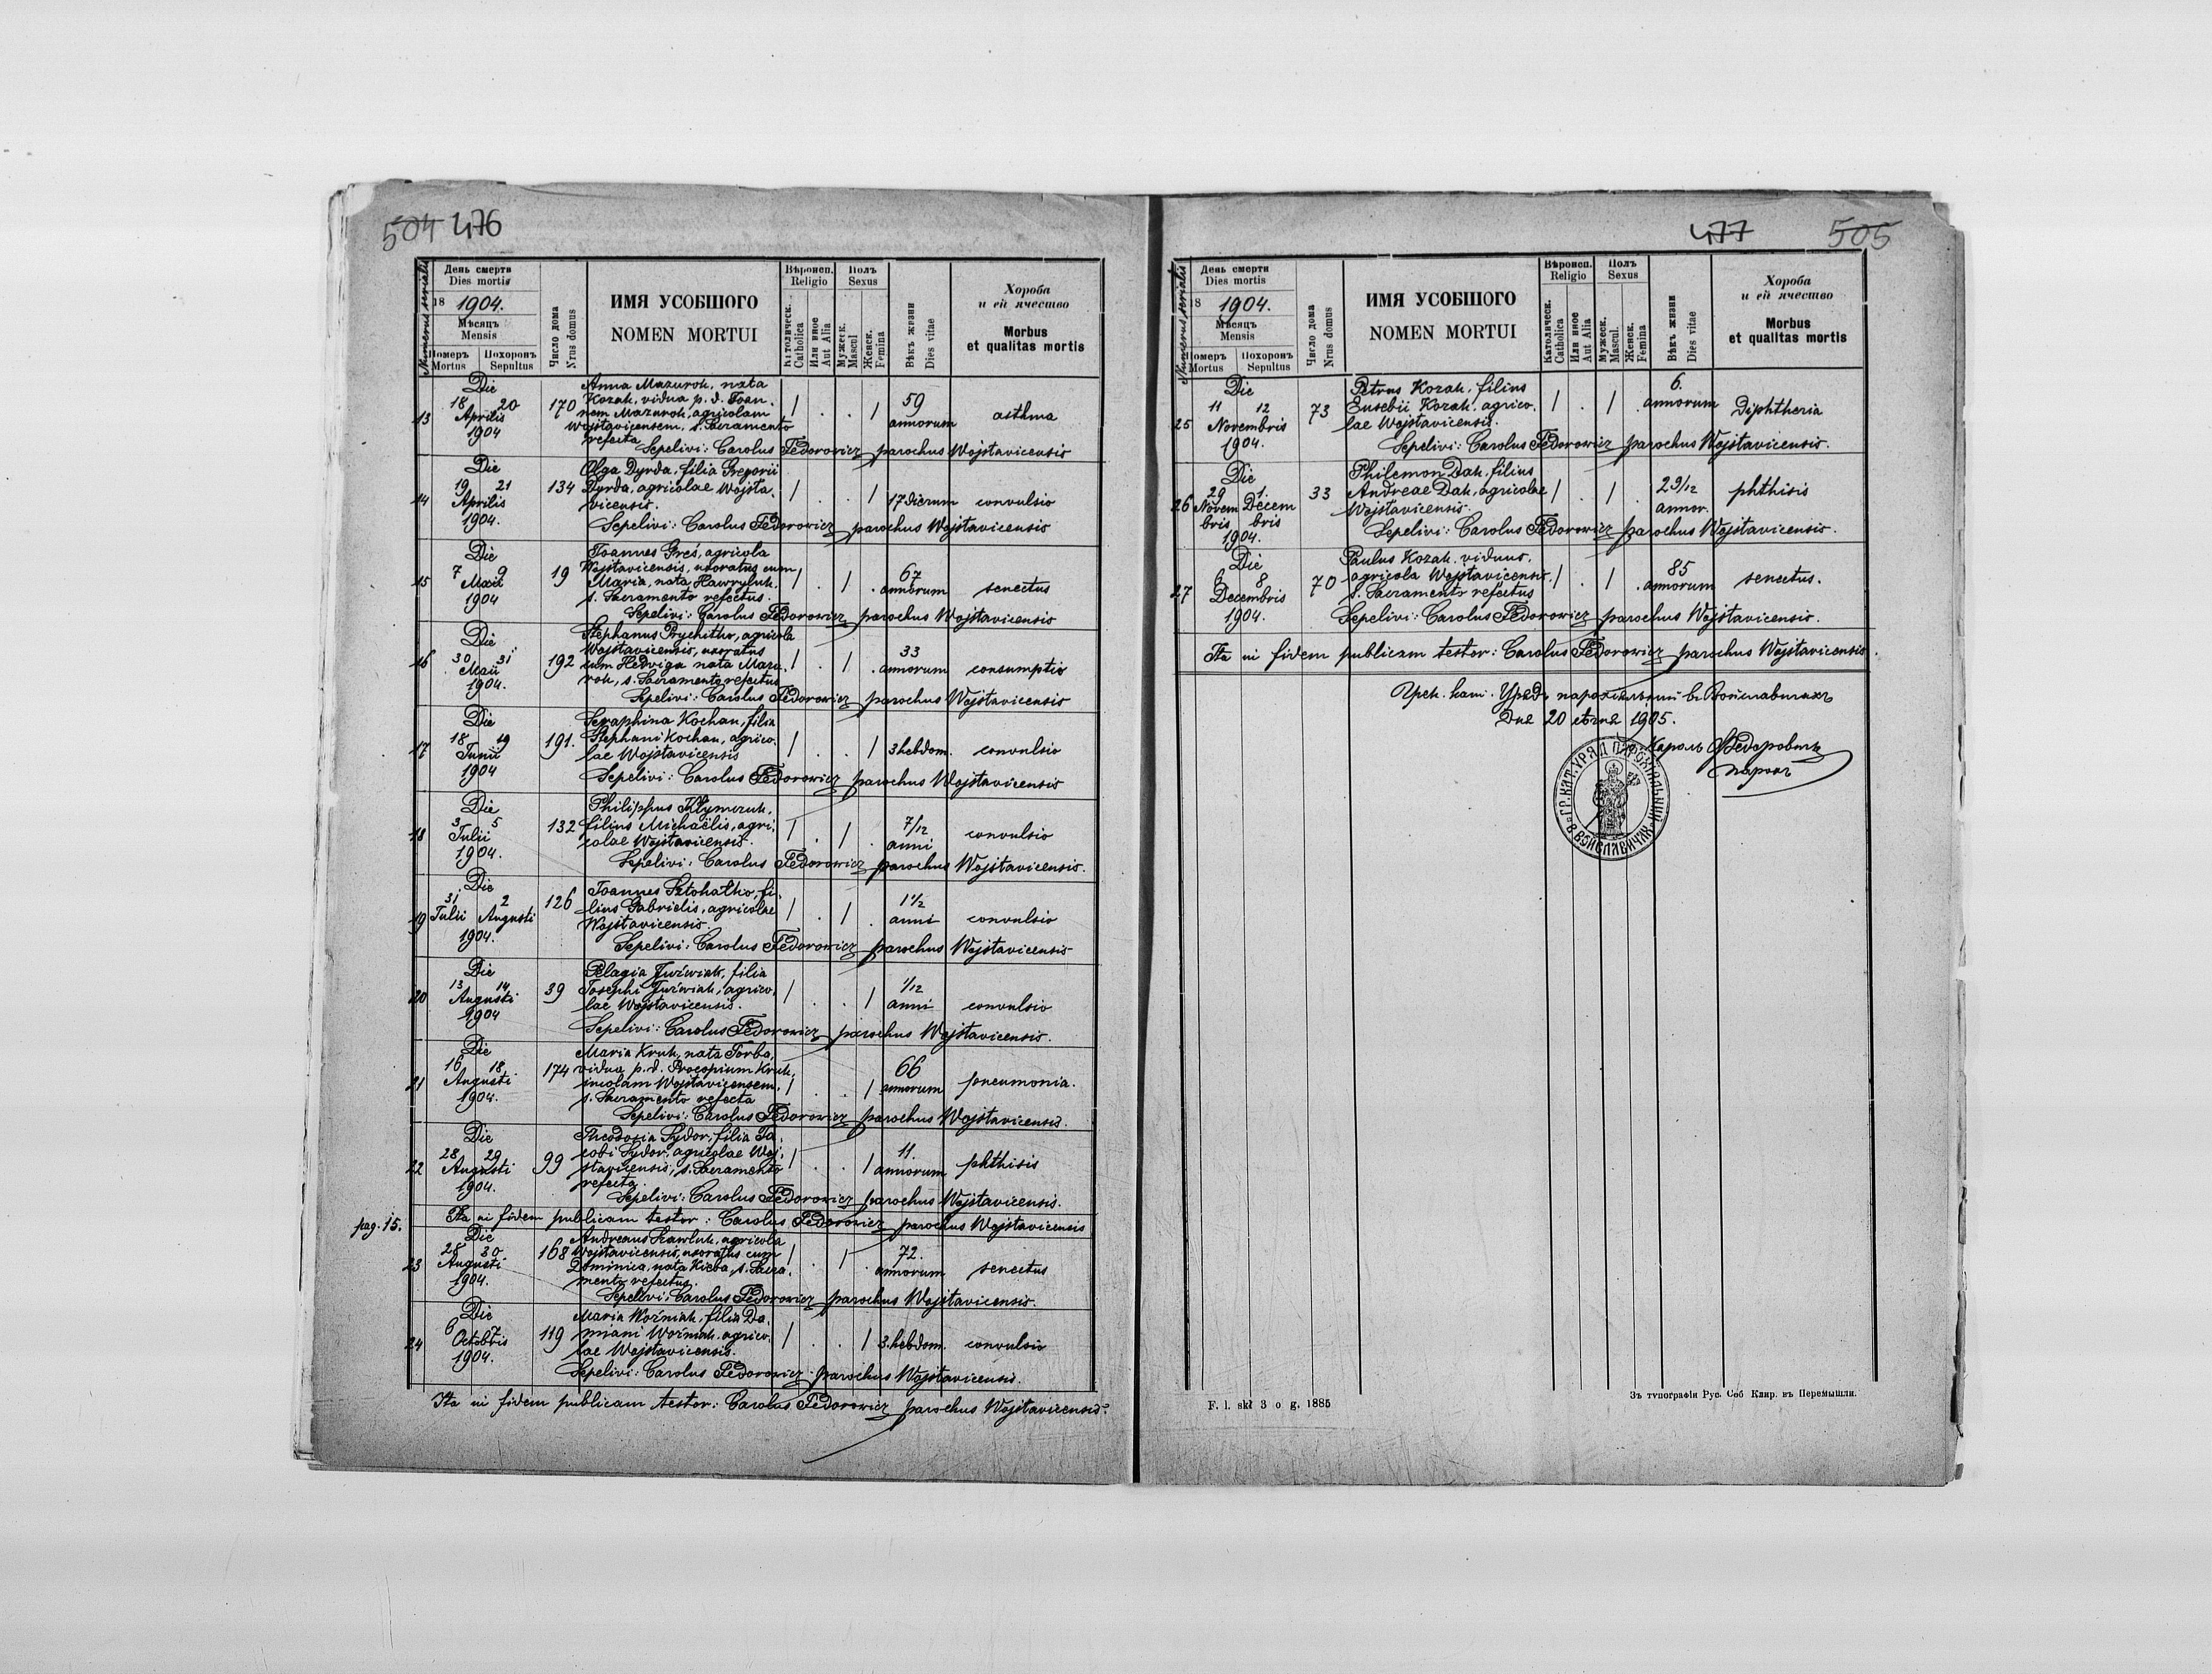 504 476
Numerus serialis
День смерти
Dies mortis
18 1904.
Мѣсяцъ
Mensis
Померъ Похоронъ
Mortus Sepultus
Число дома
Nrus domus
ИМЯ УСОБШОГО
NOMEN MORTUI
Вѣроисп.
Religio
Католическ.
Catholica
Или иное
Aut Alia
Полъ
Sexus
Мужеск.
Mascul
Женск.
Femina
Вѣкъ жизни
Dies vitae
Хороба
и ей ячество
Morbus
et qualitas mortis
Die
13 18 20 Aprilis 1904 170
Anna Mazurok, nata
Kozak, vidua p. d. Joan-
nem Mazurok, agricolam
Wojstavicensem, s. Sacramento
refecta
59 annorum asthma
Sepelivi: Carolus Fedorowicz parochus Wojstavicensis
Die
14 19 21 Aprilis 1904. 134
Olga Dyrda, filia Gregorii
Dyrda, agricolae Wojsta-
vicensis.
17 dierum convulsio
Sepelivi: Carolus Fedorowicz parochus Wojstavicensis
Die
15 7 9 Maii 1904 19
Joannes Greś, agricola
Wojstavicensis, uxoratus cum
Maria, nata Hawryluk.
s. Sacramento refectus.
67 annorum senectus
Sepelivi: Carolus Fedorowicz parochus Wojstavicensis
Die
16 30 31 Maii 1904. 192
Stephanus Prychitko, agricola
Wojstavicensis, uxoratus
cum Hedviga nata Mazu-
rok, s. Sacramento refectus
33 annorum consumptio
Sepelivi: Carolus Fedorowicz parochus Wojstavicensis
Die
17 18 19 Junii 1904 191.
Seraphina Kochan, filia
Stephani Kochan, agrico-
lae Wojstavicensis
3 hebdom. convulsio
Sepelivi: Carolus Fedorowicz parochus Wojstavicensis
Die
18 3 5 Julii 1904. 132
Philippus Klymczuk,
filius Michaëlis, agri-
colae Wojstavicensis.
7/12 anni convulsio
Sepelivi: Carolus Fedorowicz parochus Wojstavicensis.
Die
19 31 Julii 2 Augusti 1904. 126
Joannes Sztohatko, fi-
lius Gabrielis, agricolae
Wojstavicensis.
1 1/2 anni convulsio
Sepelivi: Carolus Fedorowicz parochus Wojstavicensis
Die
20 13 14 Augusti 1904 39
Pelagia Juźwiak, filia
Josephi Juźwiak, agrico-
lae Wojstavicensis.
1/12 anni convulsio
Sepelivi: Carolus Fedorowicz parochus Wojstavicensis.
Die
21 16 18 Augusti 1904. 174
Maria Kruk, nata Torba,
vidua p. d. Procopium Kruk,
incolam Wojstavicensem,
s. Sacramento refecta
66 annorum pneumonia.
Sepelivi: Carolus Fedorowicz parochus Wojstavicensis.
Die
22 28 29 Augusti 1904. 99
Theodosia Sydor, filia Ja-
cobi Sydor, agricolae Woj-
stavicensis, s. Sacramento
refecta.
11. annorum phthisis
Sepelivi: Carolus Fedorowicz parochus Wojstavicensis.
pag. 15. Ita in fidem publicam testor: Carolus Fedorowicz parochus Wojstavicensis
Die
23 28 30 Augusti 1904. 168
Andreas Szawluk, agricola
Wojstavicensis, uxoratus cum
Dominica, nata Kicba, s. Sacra-
mento refectus.
72. annorum senectus
Sepelivi: Carolus Fedorowicz parochus Wojstavicensis.
Die
24 6 7 Octobris 1904. 119
Maria Woźniak, filia Da-
miani Woźniak, agrico-
lae Wojstavicensis.
3. hebdom. convulsio
Sepelivi: Carolus Fedorowicz parochus Wojstavicensis.
Ita in fidem publicam testor: Carolus Fedorowicz parochus Wojstavicensis.
477 505
Numerus serialis
День смерти
Dies mortis
18 1904.
Мѣсяцъ
Mensis
Померъ Похоронъ
Mortus Sepultus
Число дома
Nrus domus
ИМЯ УСОБШОГО
NOMEN MORTUI
Вѣроисп.
Religio
Католическ.
Catholica
Или иное
Aut Alia
Полъ
Sexus
Мужеск.
Mascul.
Женск.
Femina
Вѣкъ жизни
Dies vitae
Хороба
и ей ячество
Morbus
et qualitas mortis
Die
25 11 12 Novembris 1904. 73
Petrus Kozak, filius
Eusebii Kozak, agrico-
lae Wojstavicensis.
6. annorum Diphtheria
Sepelivi: Carolus Fedorowicz parochus Wojstavicensis.
Die
26 29 Novembris 1. Decembris 1904. 33
Philemon Dak, filius
Andreae Dak, agricolae
Wojstavicensis.
2 9/12 annor. phthisis
Sepelivi: Carolus Fedorowicz parochus Wojstavicensis.
Die
27 6 8 Decembris 1904. 70
Paulus Kozak, viduus,
agricola Wojstavicensis.
s. Sacramento refectus
85 annorum senectus.
Sepelivi: Carolus Fedorowicz parochus Wojstavicensis.
Ita in fidem publicam testor: Carolus Fedorowicz parochus Wojstavicensis.
Грек. кат. Урядъ парохіяльный в Войславичахъ
Дня 20 1905.
Кароль Федоровичъ
парох
ГР. КАТ. УРЯД ПАРОХІАЛЬНИЙ В ВОЙСЛАВИЧАХ
F. l. skł 3 o g. 1885
Зъ типографіи Рус. Соб Клир. въ Перемышли.